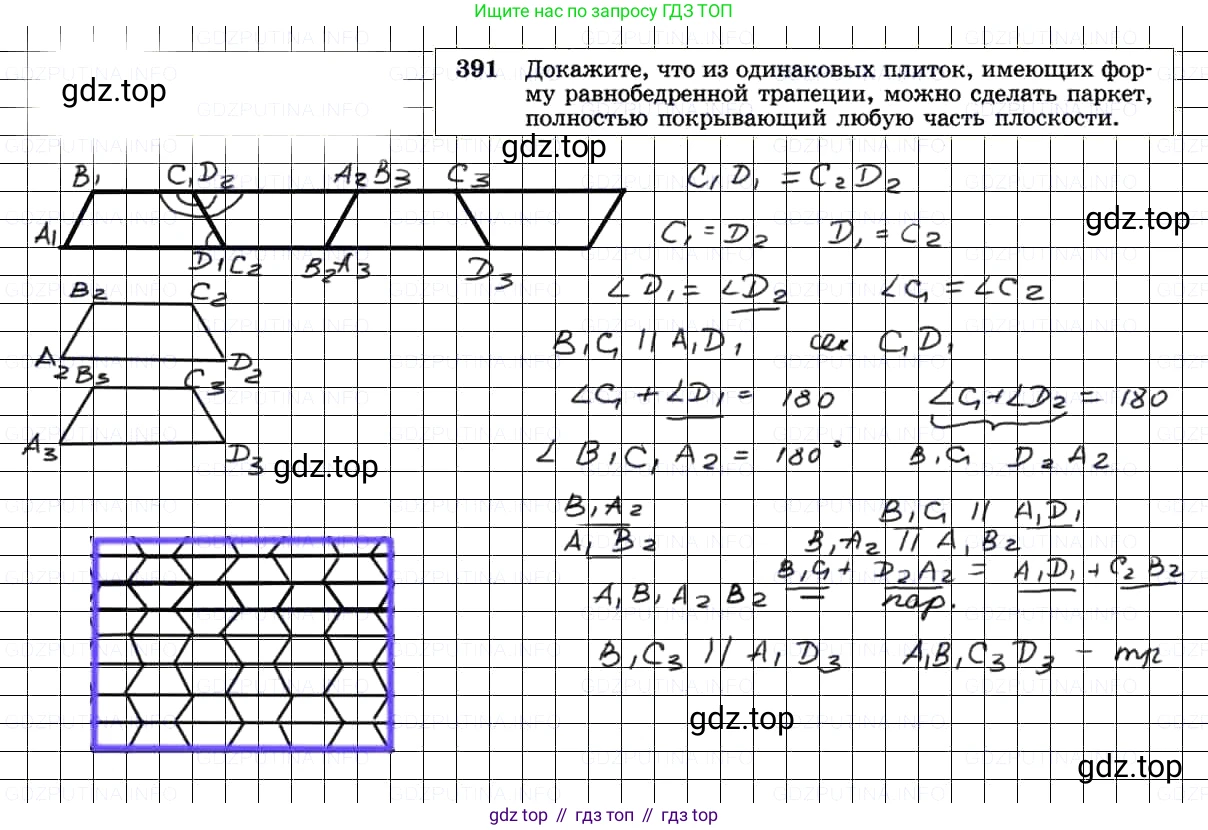 Ищите нас по запросу ГДЗ ТОП
391 Докажите, что из одинаковых плиток, имеющих фор-
му равнобедренной трапеции, можно сделать паркет,
полностью покрывающий любую часть плоскости.
gdz.top
gdz.top
gdz.top
B₁ C₁D₂ A₂B₃ C₃
A₁ D₁C₂ B₂A₃ D₃
B₂ C₂
A₂ D₂
B₃ C₃
A₃ D₃
gdz.top
C₁D₁ = C₂D₂
C₁ = D₂ D₁ = C₂
∠D₁ = ∠D₂ ∠C₁ = ∠C₂
B₁C₁ || A₁D₁ сек C₁D₁
∠C₁ + ∠D₁ = 180 ∠C₁+∠D₂ = 180
∠B₁C₁A₂ = 180° B₁C₁ D₂A₂
B₁A₂ B₁C₁ || A₁D₁
A₁B₂ B₁A₂ || A₁B₂
B₁C₁ + D₂A₂ = A₁D₁ + C₂B₂
A₁B₁A₂B₂ – пар.
B₁C₃ || A₁D₃ A₁B₁C₃D₃ – тр
gdz.top
gdz.top
gdz топ // гдз топ // гдз top